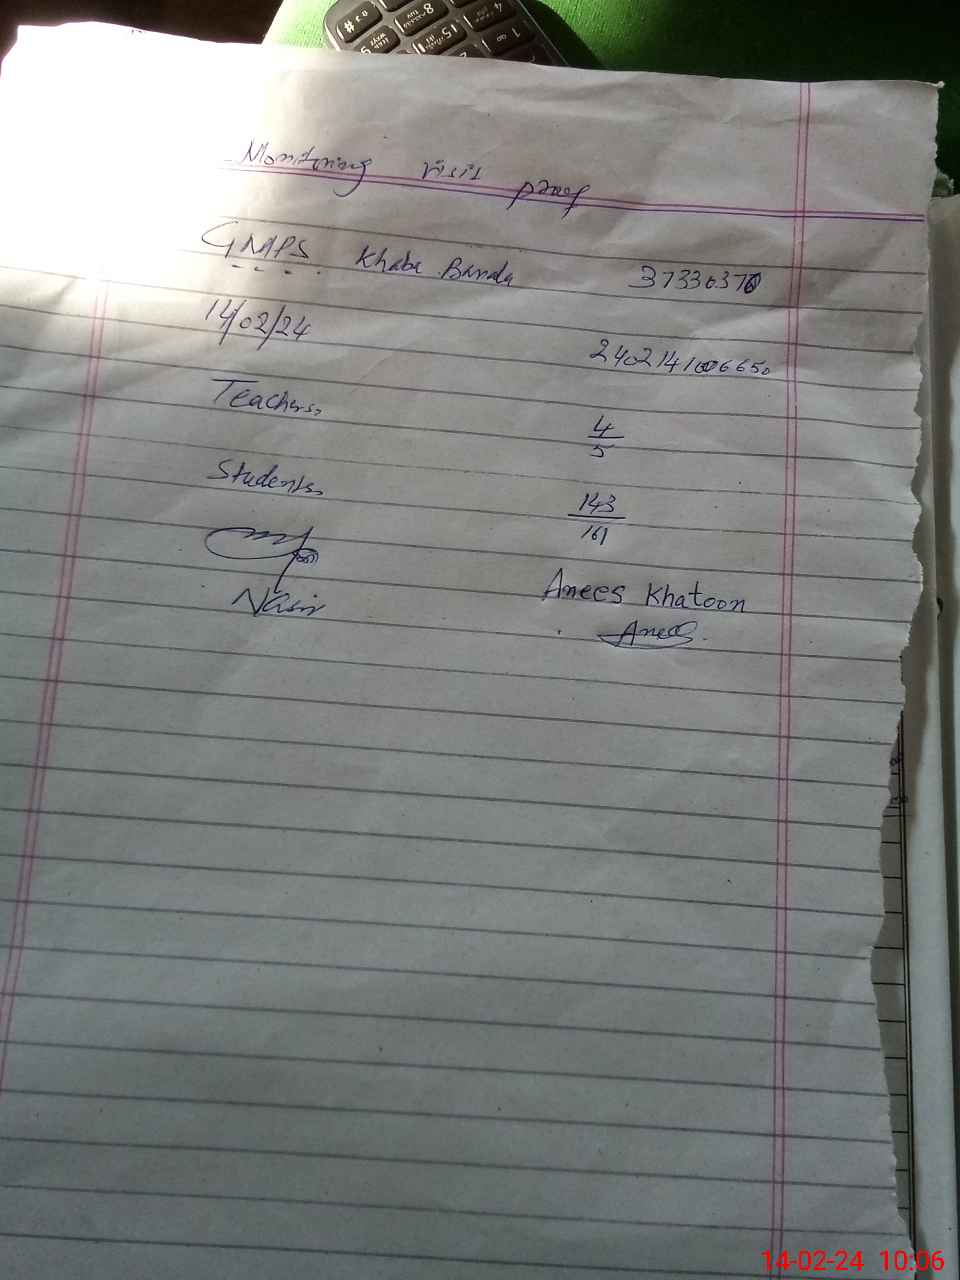 Monitoring visit proof
GMPS Khaba Banda 37330370
14/02/24 2402141006650
Teachers 4/5
Students 143/161
Nasir Anees Khatoon
Anees
14-02-24 10:06